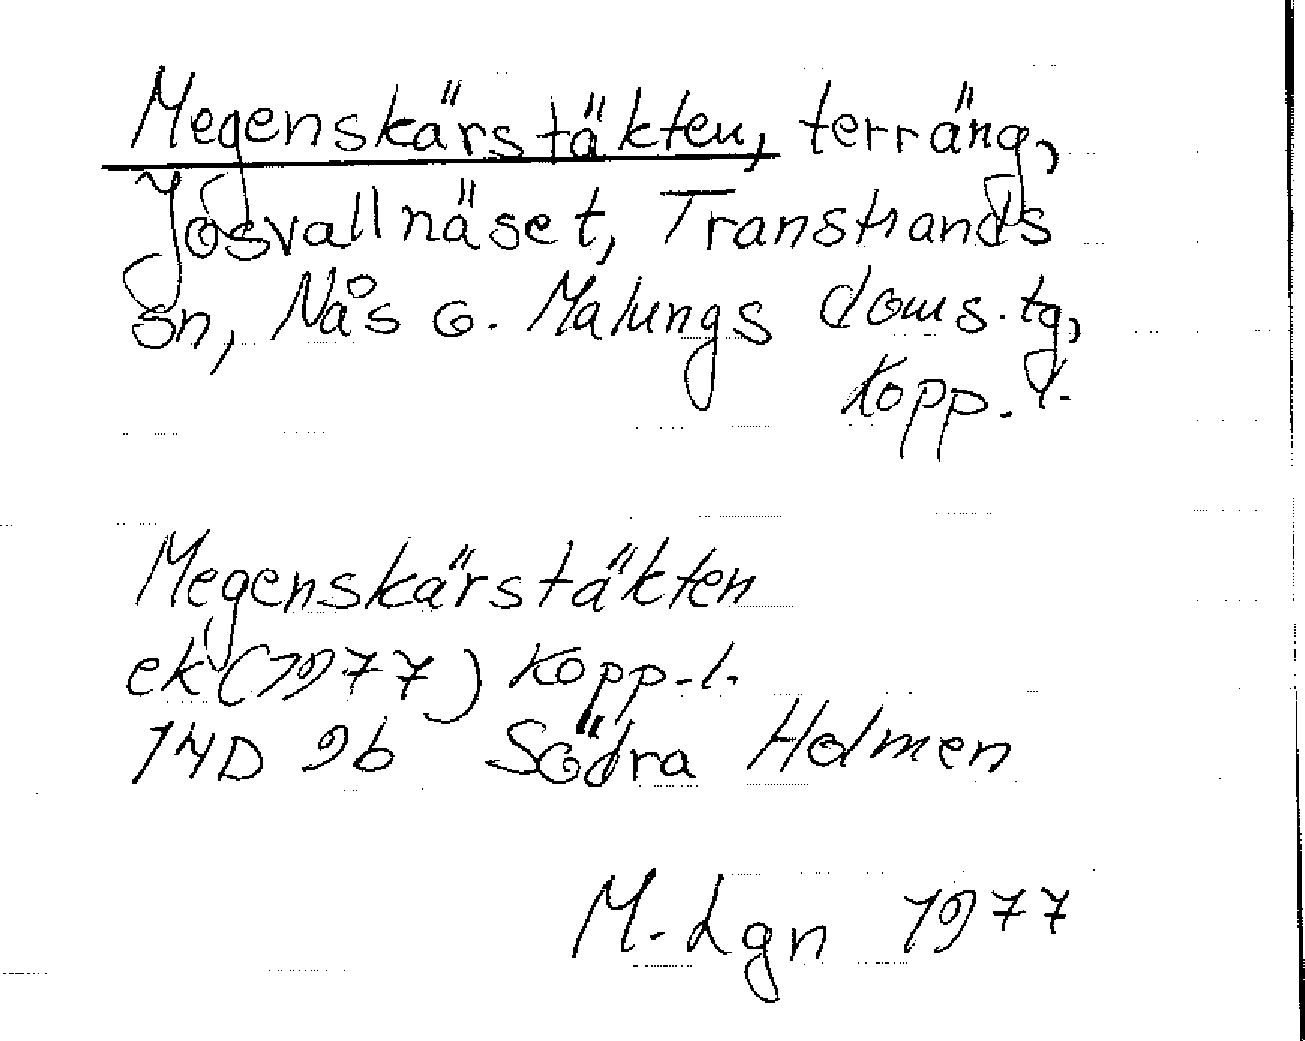 Megenskärstäkten, terräng,
Josvallnäset, Transtrands
sn, Nås o. Malungs doms. tg,
Kopp. l.
Megenskärstäkten
ek (1977) Kopp. l.
14D 9b Södra Holmen
M. Lgn 1977